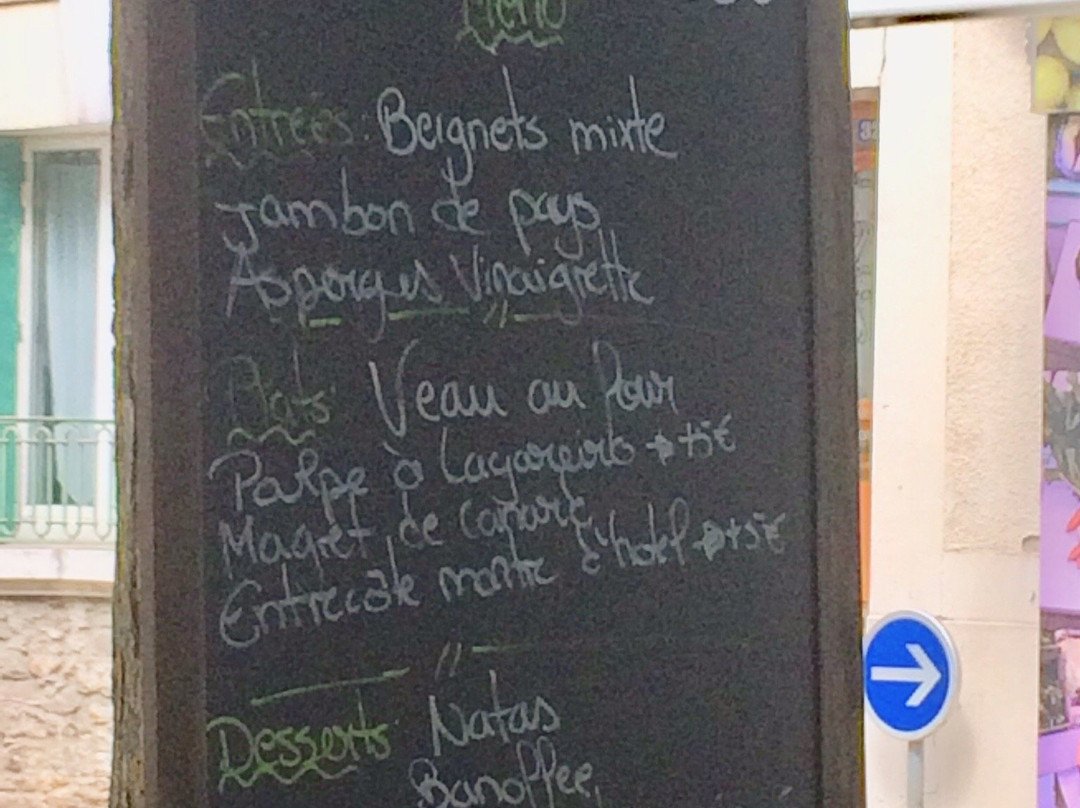 Menu
Entrées: Beignets mixte
Jambon de pays
Asperges Vinaigrette
Plats: Veau au four
Poulpe à Lagareiro → +5€
Magret de canard
Entrecôte maître d'hotel → +5€
Desserts: Natas
Banoffee,